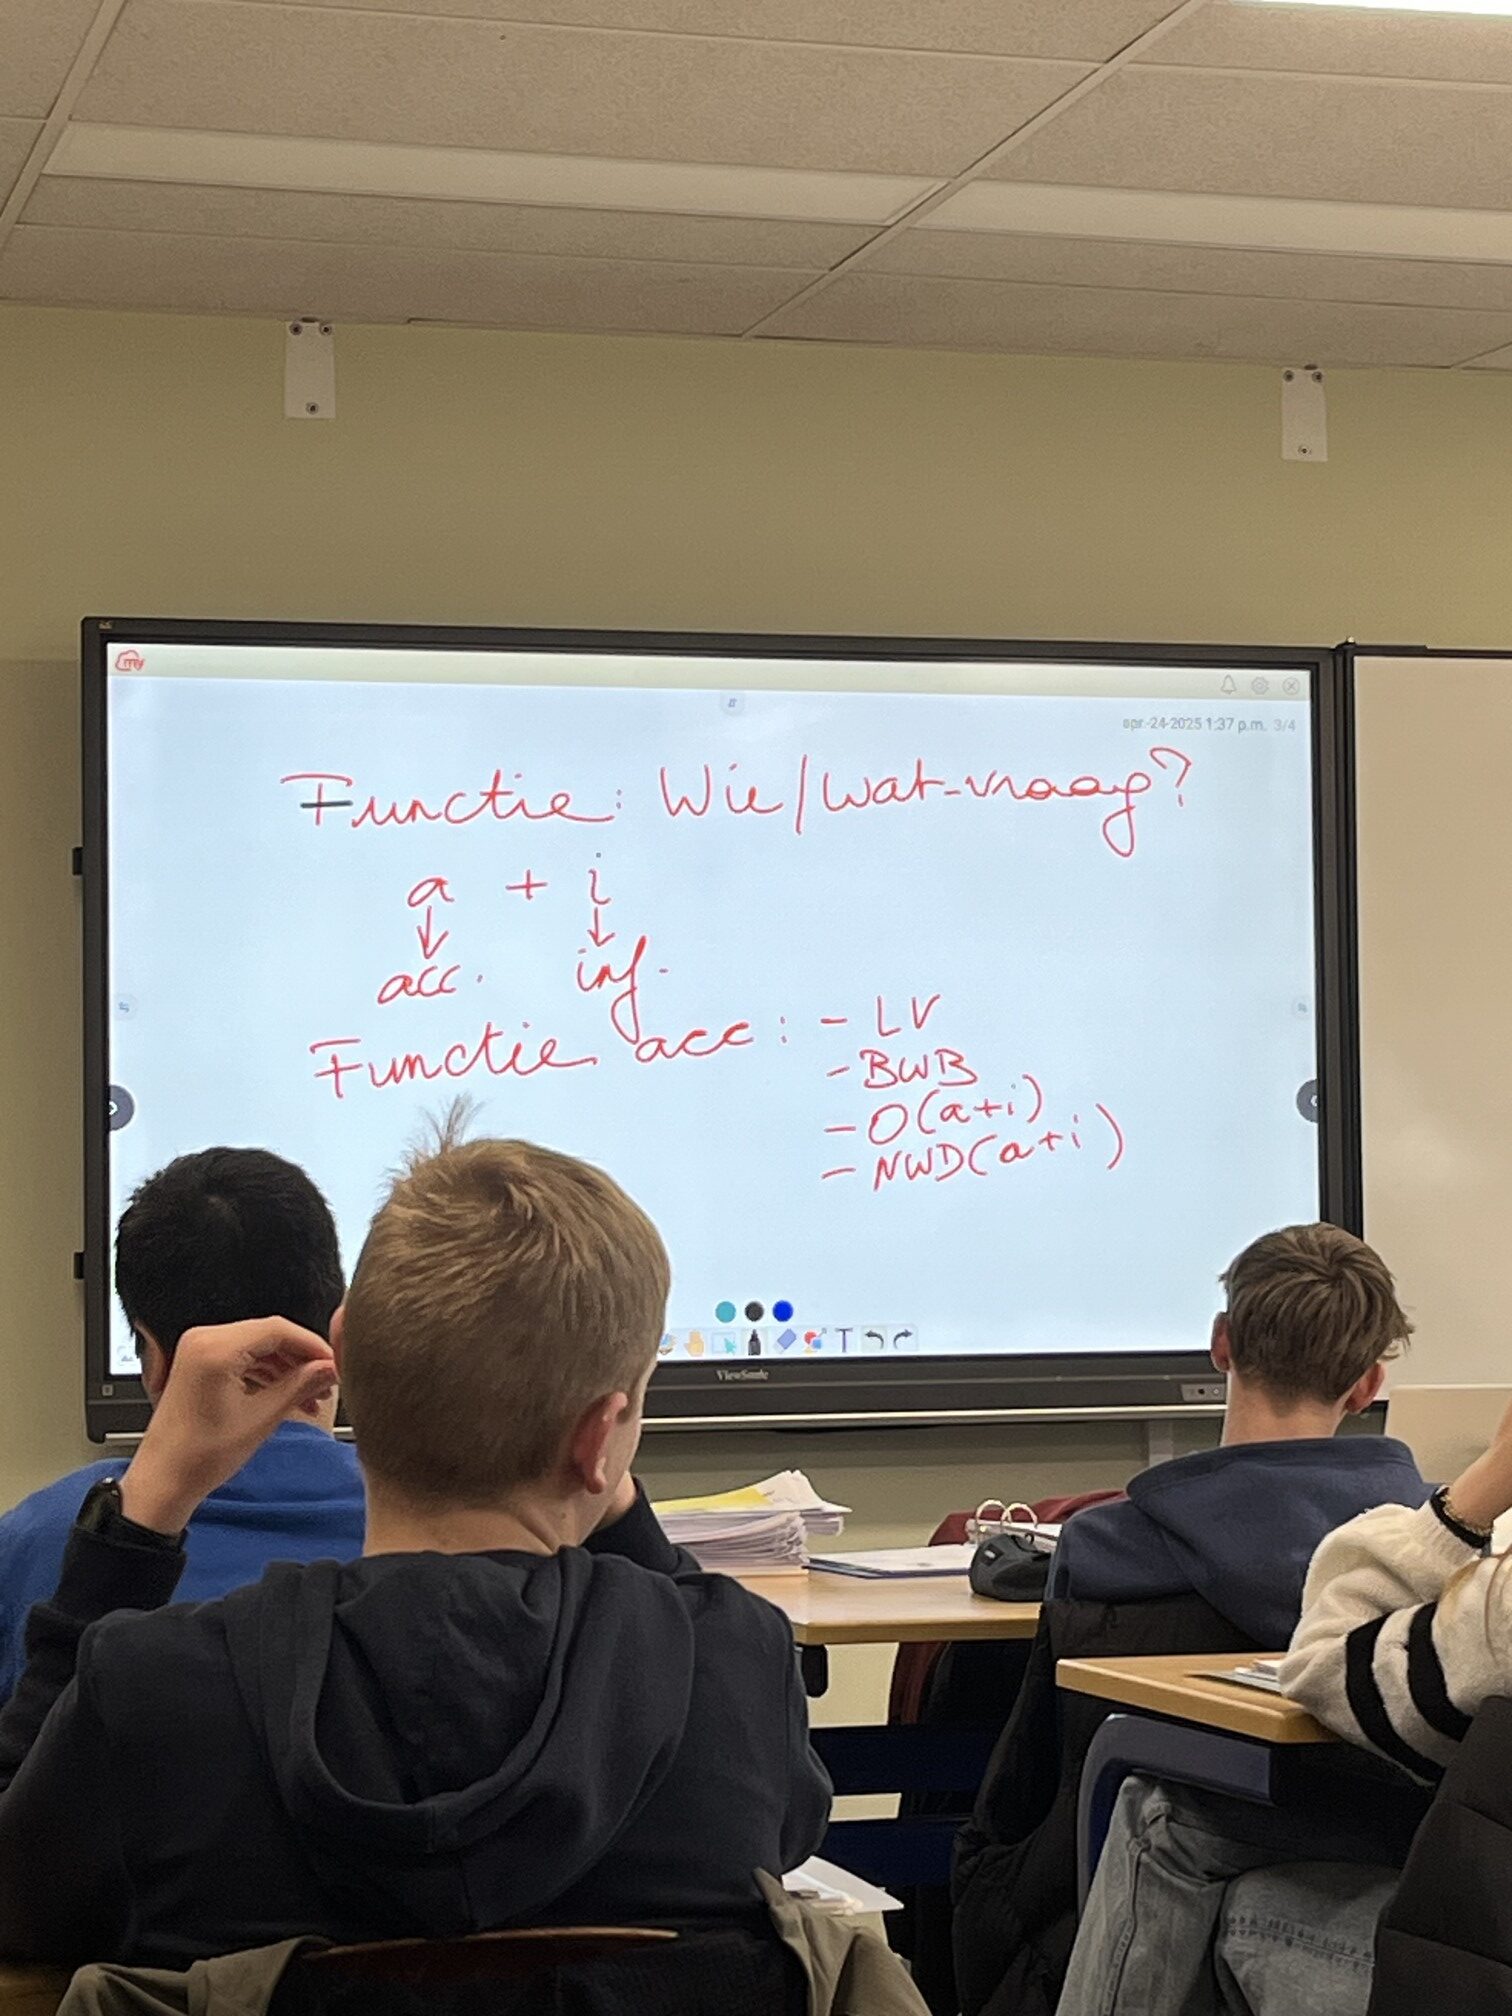 my
apr.-24-2025 1:37 p.m. 3/4
Functie: Wie/wat-vraag?
a + i
↓ ↓
acc. inf.
Functie acc: - LV
- BWB
- O(a+i)
- NWD(a+i)
T
ViewSonic